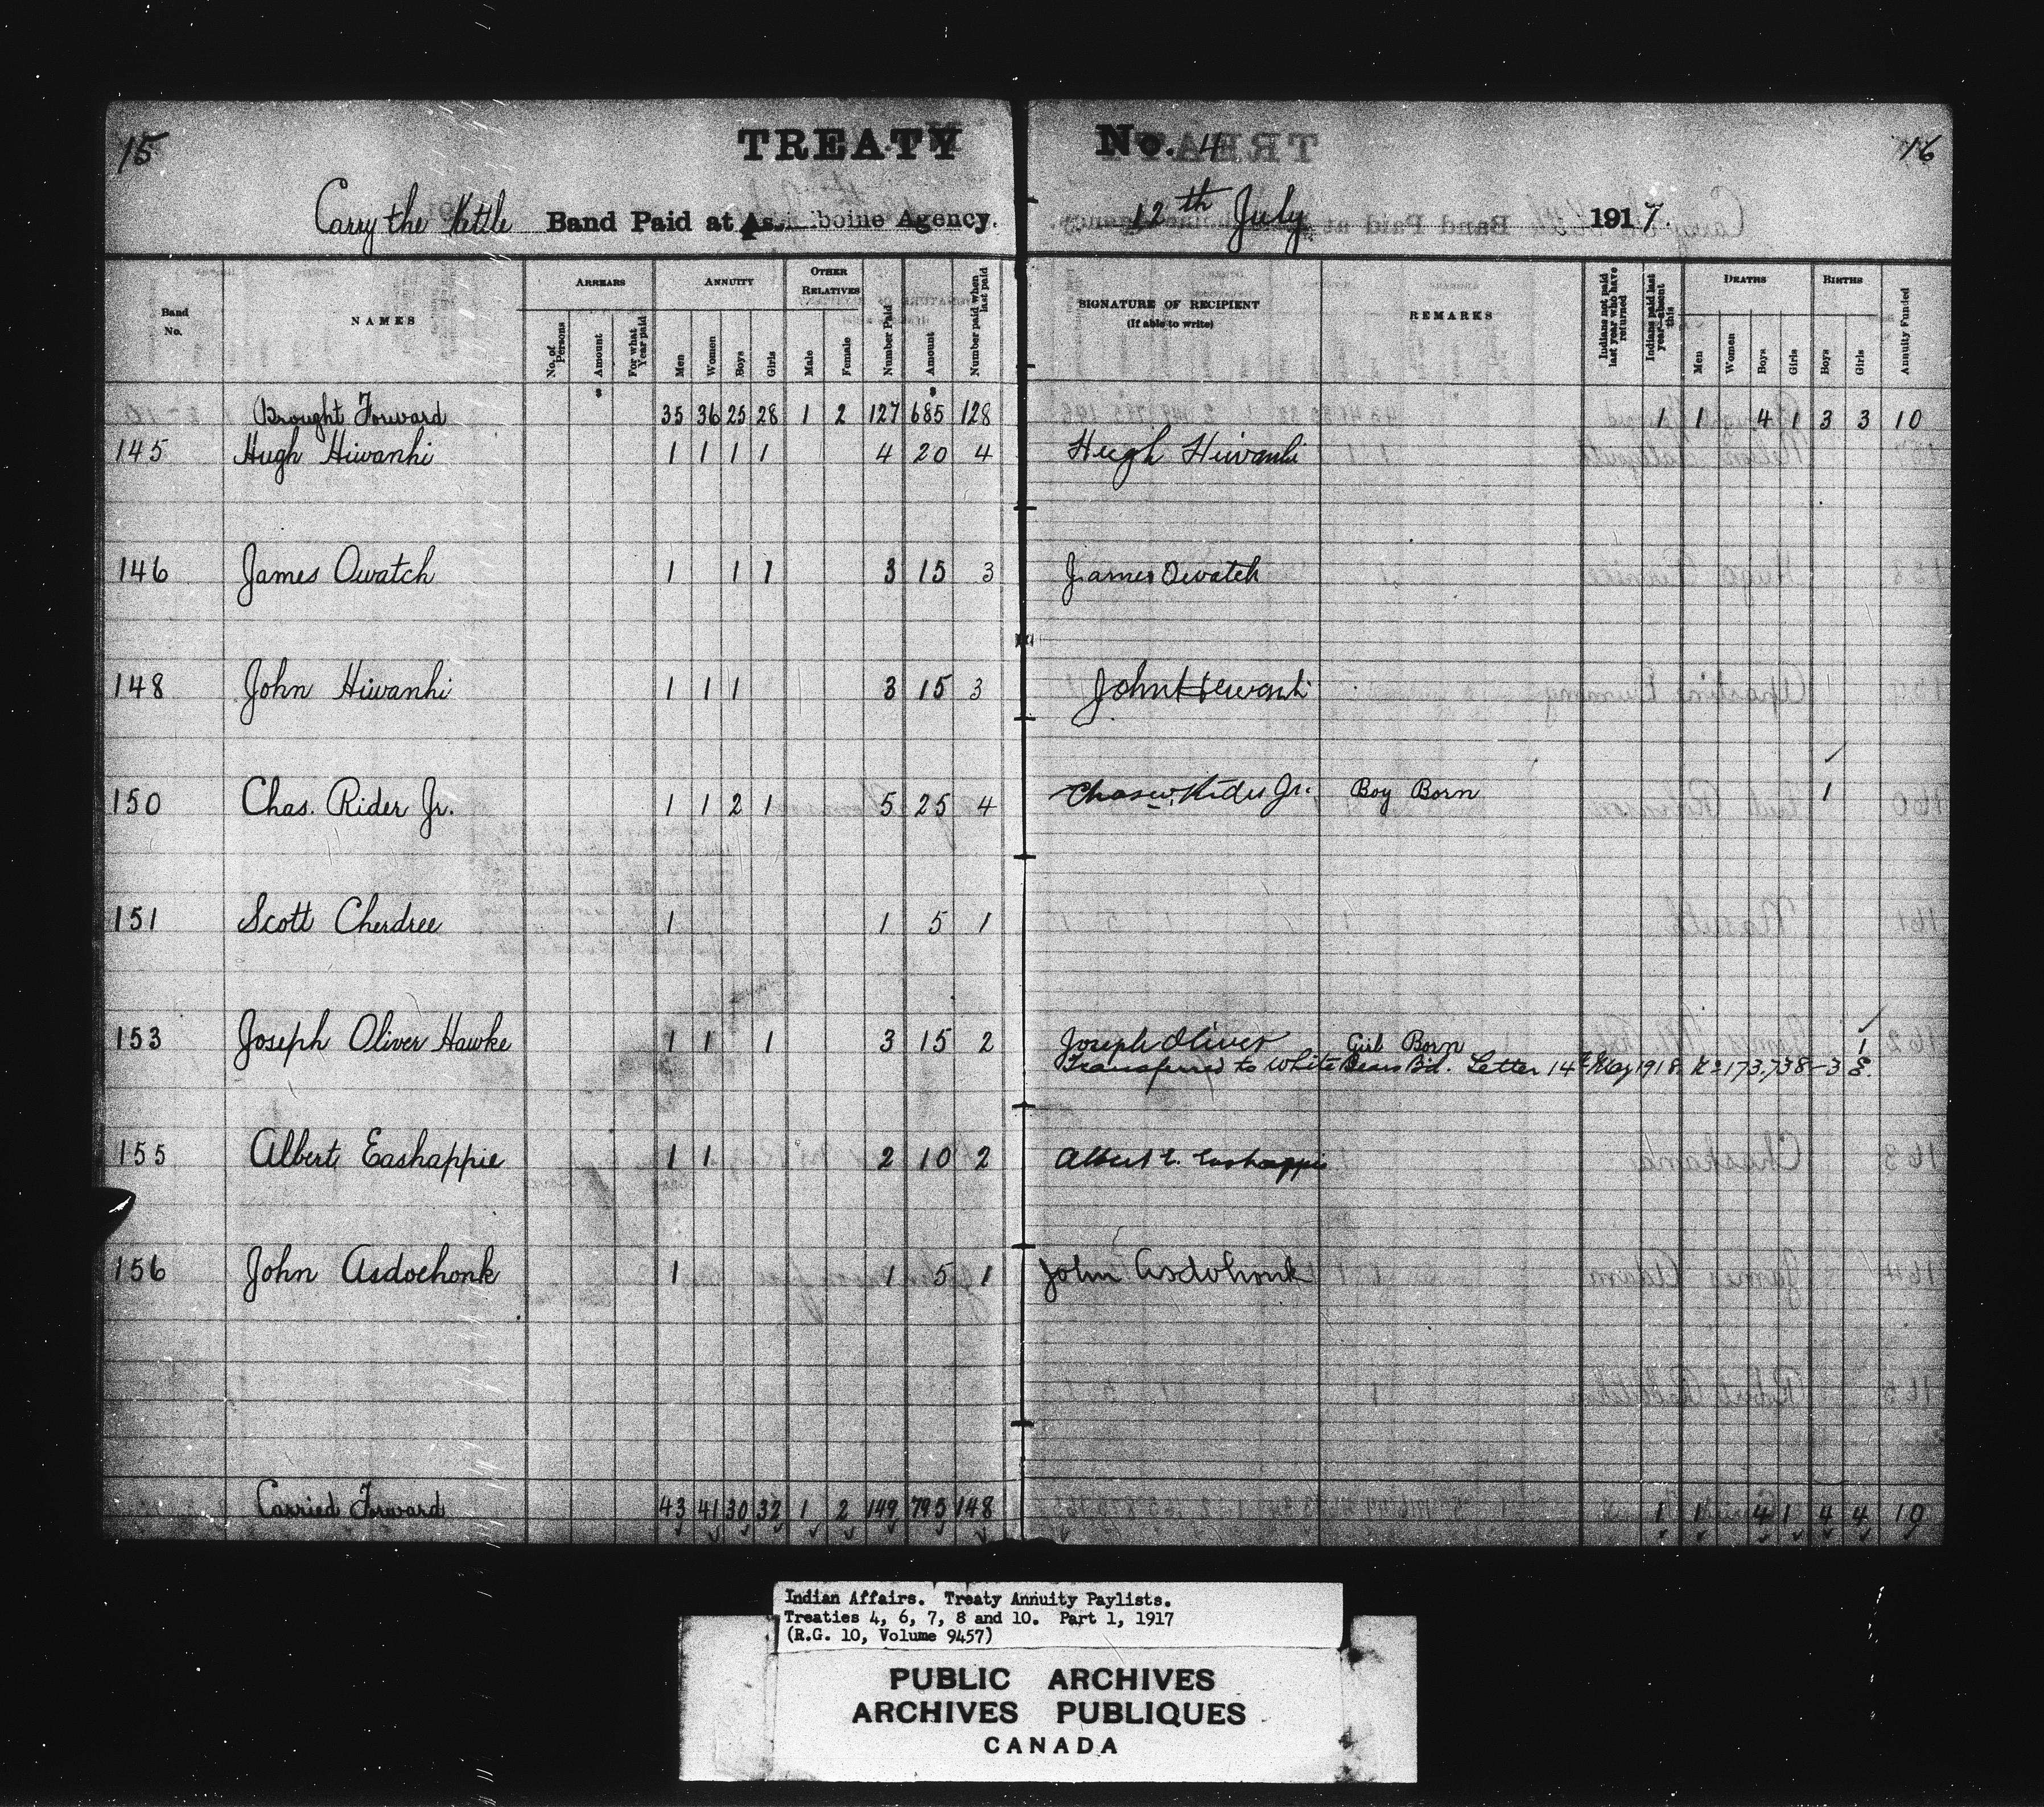 15
TREATY No. 4
16
Carry the Kettle Band Paid at Assiniboine Agency. 12th July 1917.
Band No.
NAMES
ARREARS
No. of Persons
Amount
For what Year paid
ANNUITY
Men
Women
Boys
Girls
OTHER RELATIVES
Male
Female
Number Paid
Amount
Number paid when last paid
SIGNATURE OF RECIPIENT
(If able to write)
REMARKS
Indians not paid last year who have returned
Indians paid last year—absent this
DEATHS
Men
Women
Boys
Girls
BIRTHS
Boys
Girls
Annuity Funded
$ $
Brought Forward 35 36 25 28 1 2 127 685 128 1 1 4 1 3 3 10
145 Hugh Hiwanhi 1 1 1 1 4 20 4 Hugh Hiwanhi
146 James Owatch 1 1 1 3 15 3 James Owatch
148 John Hiwanhi 1 1 1 3 15 3 John Hewanhi
150 Chas. Rider Jr. 1 1 2 1 5 25 4 Chas w. Rider Jr. Boy Born 1
151 Scott Cherdree 1 1 5 1
153 Joseph Oliver Hawke 1 1 1 3 15 2 Joseph Oliver Girl Born 1
Transferred to White Bears Bd. Letter 14th May 1918 No 173,738-3
155 Albert Eashappie 1 1 2 10 2 Albert E. Eashappie
156 John Asdochonk 1 1 5 1 John Asdohonk
Carried Forward 43 41 30 32 1 2 149 795 148 1 1 4 1 4 4 10
Indian Affairs. Treaty Annuity Paylists.
Treaties 4, 6, 7, 8 and 10. Part 1, 1917
(R.G. 10, Volume 9457)
PUBLIC ARCHIVES
ARCHIVES PUBLIQUES
CANADA